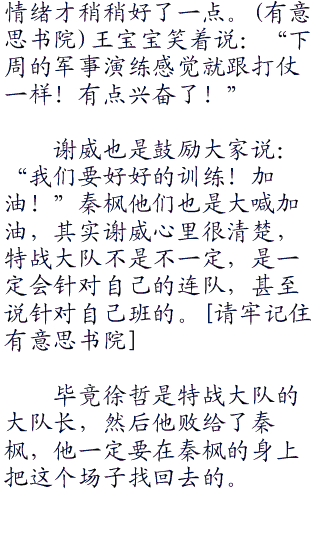 情绪才稍稍好了一点。(有意
思书院)王宝宝笑着说：“下
周的军事演练感觉就跟打仗
一样！有点兴奋了！”
谢威也是鼓励大家说：
“我们要好好的训练！加
油！”秦枫他们也是大喊加
油，其实谢威心里很清楚，
特战大队不是不一定，是一
定会针对自己的连队，甚至
说针对自己班的。[请牢记住
有意思书院]
毕竟徐哲是特战大队的
大队长，然后他败给了秦
枫，他一定要在秦枫的身上
把这个场子找回去的。